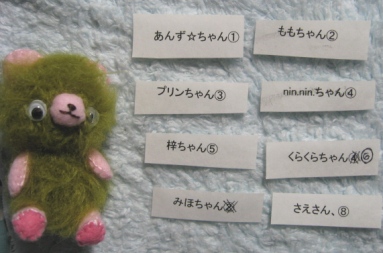 あんず☆ちゃん①
ももちゃん②
プリンちゃん③
nin.nin.ちゃん④
梓ちゃん⑤
くらくらちゃん⑥
みほちゃん
さえさん、⑧